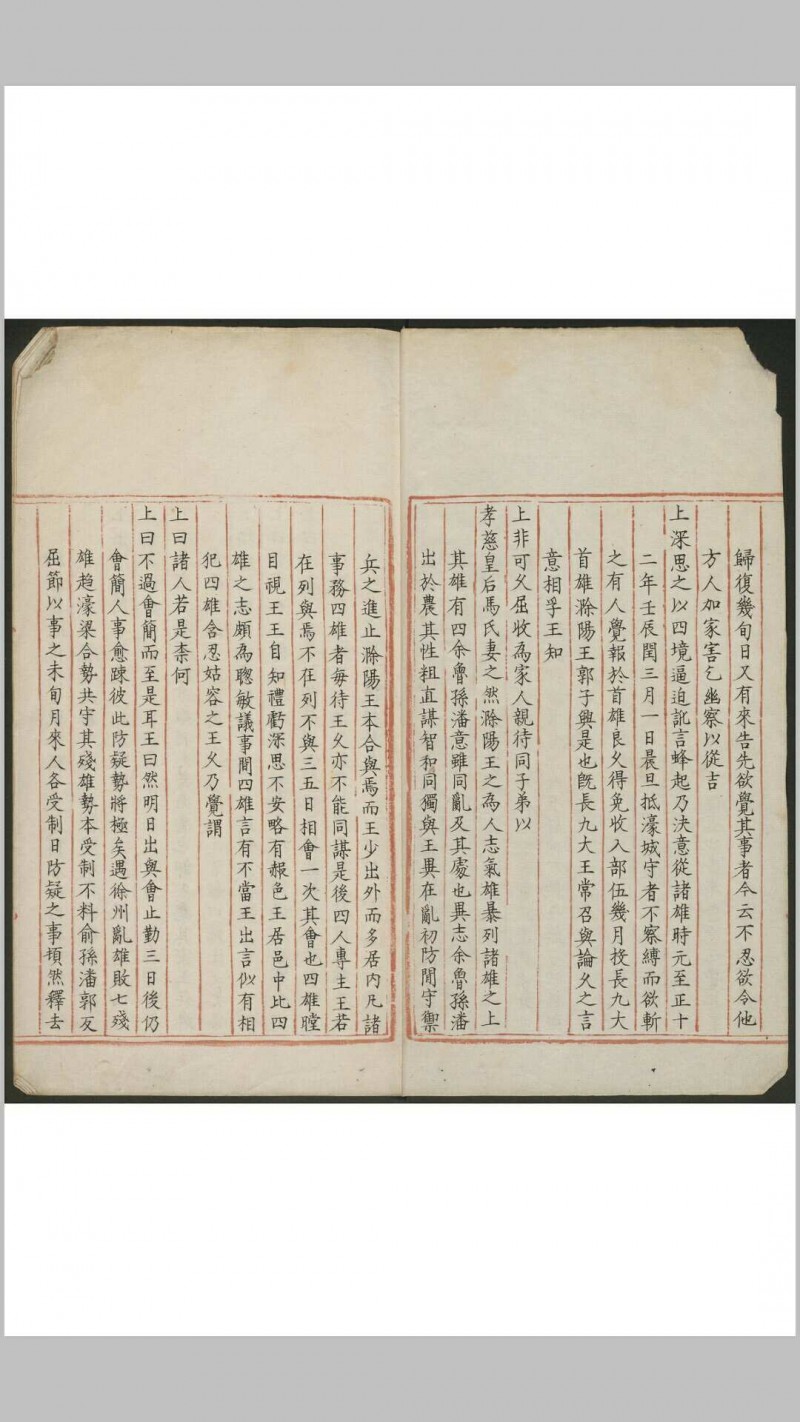 歸復幾旬日又有來告先欲覺其事者今云不忍欲令他
方人加家害乞幽察以從吉
上深思之以四境逼迫訛言蜂起乃決意從諸雄時元至正十
二年壬辰閏三月一日晨旦抵濠城守者不察縛而欲斬
之有人覺報於首雄良久得免收入部伍幾月授長九夫
首雄滁陽王郭子興是也旣長九夫王常召與論久之言
意相孚王知
上非可久屈收為家人親待同子弟以
孝慈皇后馬氏妻之然滁陽王之為人志氣雄暴列諸雄之上
其雄有四余魯孫潘意雖同亂及其處也異志余魯孫潘
出於農其性粗直謀智和同獨與王異在亂初防閒守禦
兵之進止滁陽王本合與焉而王少出外而多居內凡諸
事務四雄者每待王久亦不能同謀是後四人專主王若
在列與焉不在列不與三五日相會一次其會也四雄瞠
目視王王自知禮虧深思不安略有赧色王居邑中比四
雄之志頗為聰敏議事間四雄言有不當王出言似有相
犯四雄含忍姑容之王久乃覺謂
上曰諸人若是柰何
上曰不過會簡而至是耳王曰然明日出與會止勤三日後仍
會簡人事愈踈彼此防疑勢將極矣遇徐州亂雄敗七殘
雄趨濠梁合勢共守其殘雄勢本受制不料俞孫潘郭反
屈節以事之未旬月來人各受制日防疑之事頃然釋去